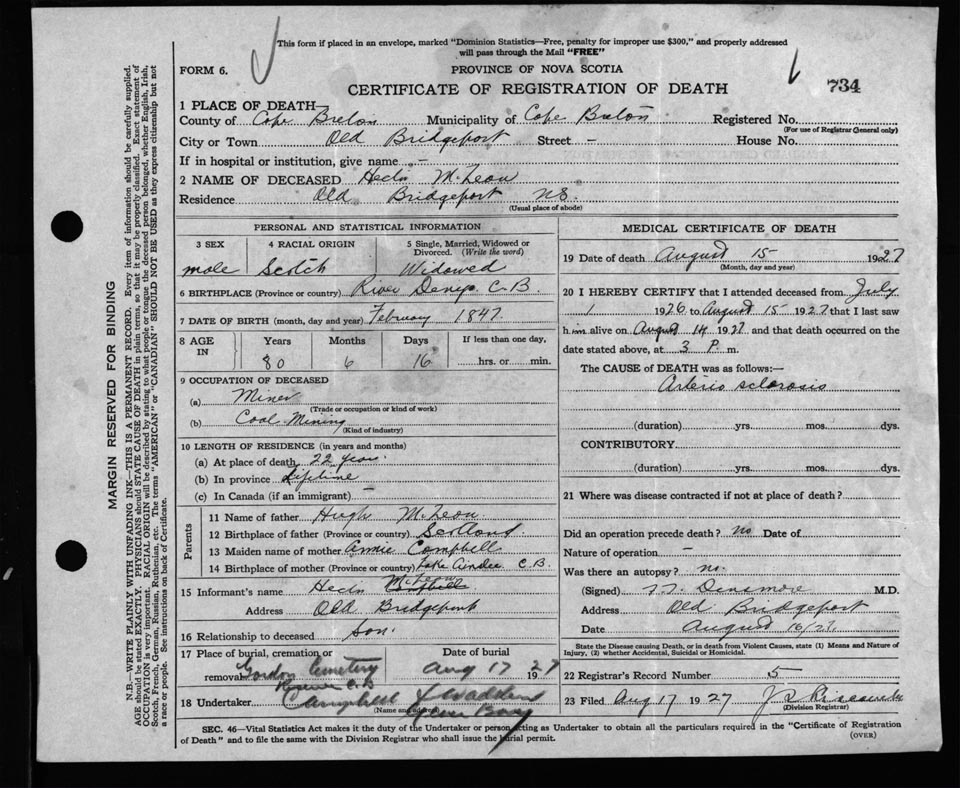 This form if placed in an envelope, marked "Dominion Statistics—Free, penalty for improper use $300," and properly addressed
will pass through the Mail "FREE"
FORM 6.
PROVINCE OF NOVA SCOTIA
734
CERTIFICATE OF REGISTRATION OF DEATH
1 PLACE OF DEATH—
County of Cape Breton Municipality of Cape Breton Registered No.
(For use of Registrar General only)
City or Town Old Bridgeport Street – House No.
If in hospital or institution, give name –
2 NAME OF DECEASED Hector McLean
Residence Old Bridgeport NS.
(Usual place of abode)
PERSONAL AND STATISTICAL INFORMATION
3 SEX 4 RACIAL ORIGIN 5 Single, Married, Widowed or
Divorced. (Write the word)
male Scotch Widowed
6 BIRTHPLACE (Province or country) River Denys C.B.
7 DATE OF BIRTH (month, day and year) February 1847
8 AGE IN Years Months Days If less than one day,
80 6 16 hrs. or min.
9 OCCUPATION OF DECEASED
(a) Miner
(Trade or occupation or kind of work)
(b) Coal Mining
(Kind of industry)
10 LENGTH OF RESIDENCE (in years and months)
(a) At place of death 22 years
(b) In province Lifetime
(c) In Canada (if an immigrant) –
Parents
11 Name of father Hugh McLean
12 Birthplace of father (Province or country) Scotland
13 Maiden name of mother Annie Campbell
14 Birthplace of mother (Province or country) Lake C.B.
15 Informant's name Hector McLean Campbell
Address Old Bridgeport
16 Relationship to deceased Son.
17 Place of burial, cremation or Date of burial
removal Gordon Cemetery Aug 17 1927
C.B.
18 Undertaker Campbell
(Name and address)
MEDICAL CERTIFICATE OF DEATH
19 Date of death August 15 1927
(Month, day and year)
20 I HEREBY CERTIFY that I attended deceased from July
1 1926 to August 15 1927 that I last saw
him alive on August 14 1927 and that death occurred on the
date stated above, at 3 P. m.
The CAUSE of DEATH was as follows:—
Arterio sclorosis
(duration) yrs. mos. dys.
CONTRIBUTORY
(duration) yrs. mos. dys.
21 Where was disease contracted if not at place of death?
Did an operation precede death? no Date of
Nature of operation –
Was there an autopsy? no.
(Signed) Densmore M.D.
Address Old Bridgeport
Date August 16/27.
State the Disease causing Death, or in death from Violent Causes, state (1) Means and Nature of
Injury, (2) whether Accidental, Suicidal or Homicidal.
22 Registrar's Record Number 5
23 Filed Aug 17 1927
(Division Registrar)
SEC. 46—Vital Statistics Act makes it the duty of the Undertaker or person acting as Undertaker to obtain all the particulars required in the "Certificate of Registration
of Death" and to file the same with the Division Registrar who shall issue the burial permit.
(OVER)
MARGIN RESERVED FOR BINDING
N.B.—WRITE PLAINLY WITH UNFADING INK—THIS IS A PERMANENT RECORD. Every item of information should be carefully supplied.
AGE should be stated EXACTLY. PHYSICIANS should STATE CAUSE OF DEATH in plain terms, so that it may be properly classified. Exact statement of
OCCUPATION is very important. RACIAL ORIGIN will be described by stating to what people or tongue the deceased person belonged, whether English, Irish,
Scotch, French, German, Russian, Ruthenian, etc. The terms "AMERICAN" or "CANADIAN" SHOULD NOT BE USED as they express citizenship but not
a race or people. See instructions on back of Certificate.